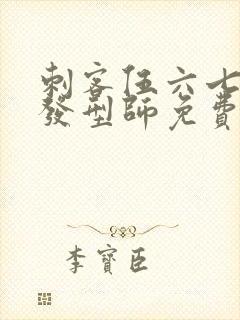 刺客伍六七
發型師免費
李寶臣